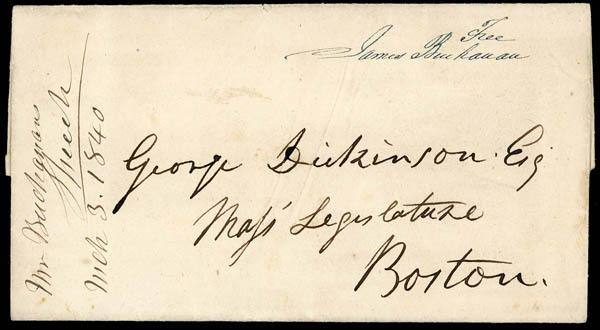 Free
James Buchanan
George Dickinson. Esq
Mass Legislature
Boston.
Mr Buchanan
Speech
Mch 3. 1840